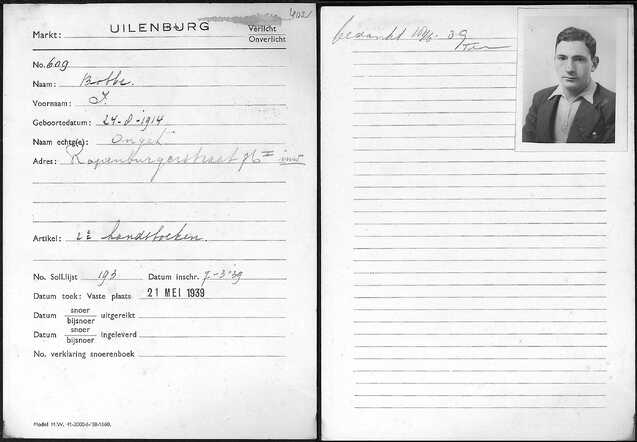 402
Markt: UILENBURG Verlicht
Onverlicht
No. 609
Naam: Bobbe.
Voornaam: I.
Geboortedatum: 24-8-1914
Naam echtg(e): Ongeh.
Adres: Rapenburgerstraat 76 II inw
Artikel: 2e handsboeken.
No. Soll.lijst 193 Datum inschr. 7-3-'39
Datum toek: Vaste plaats 21 MEI 1939
Datum snoer/bijsnoer uitgereikt
Datum snoer/bijsnoer ingeleverd
No. verklaring snoerenboek
Model M.W.
bedankt 10/6-39